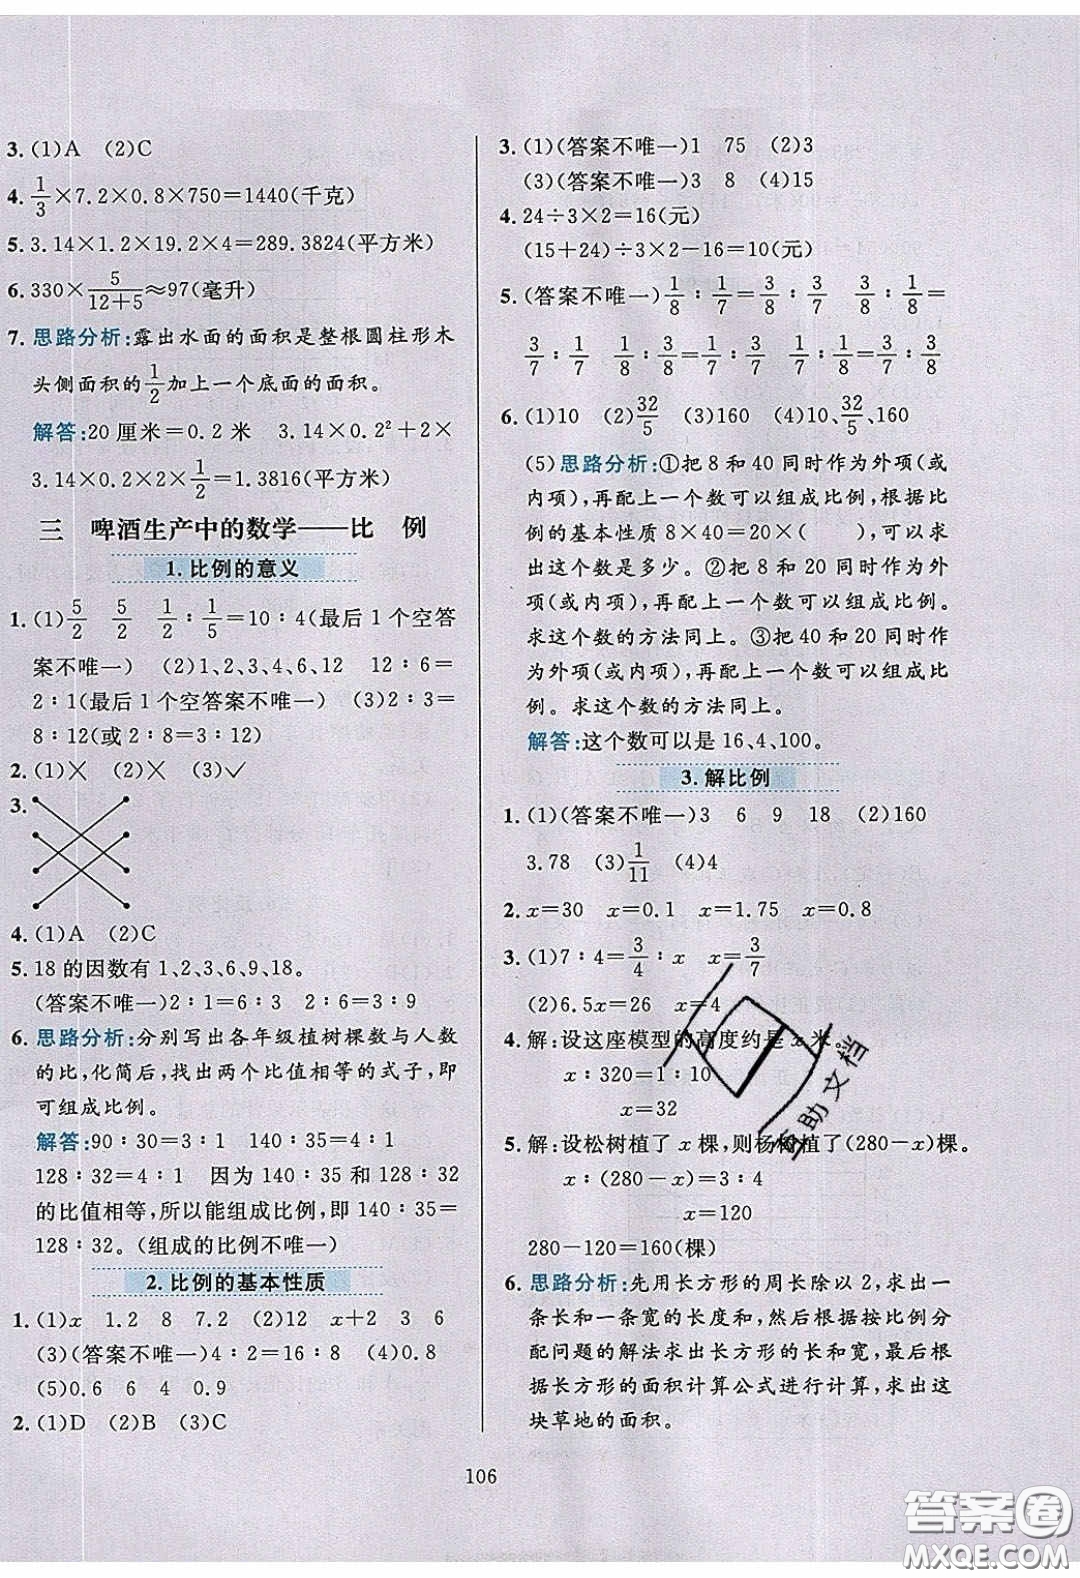 3. (1)A (2)C
4. 1/3×7.2×0.8×750=1440(千克)
5. 3.14×1.2×19.2×4=289.3824(平方米)
6. 330×5/(12+5)≈97(毫升)
7. 思路分析:露出水面的面积是整根圆柱形木
头侧面积的1/2加上一个底面的面积。
解答:20 厘米=0.2 米 3.14×0.2²+2×
3.14×0.2×2×1/2=1.3816(平方米)
三 啤酒生产中的数学——比 例
1. 比例的意义
1. (1)5/2 5/2 1/2∶1/5=10∶4(最后 1 个空答
案不唯一) (2)1、2、3、4、6、12 12∶6=
2∶1(最后 1 个空答案不唯一) (3)2∶3=
8∶12(或 2∶8=3∶12)
2. (1)× (2)× (3)✓
3.
4. (1)A (2)C
5. 18 的因数有 1、2、3、6、9、18。
(答案不唯一)2∶1=6∶3 1∶3=3∶9
6. 思路分析:分别写出各年级植树棵数与人数
的比,化简后,找出两个比值相等的式子,即
可组成比例。
解答:90∶30=3∶1 140∶35=4∶1
128∶32=4∶1 因为 140∶35 和 128∶32
的比值相等,所以能组成比例,即 140∶35=
128∶32。(组成的比例不唯一)
2. 比例的基本性质
1. (1)x 1.2 8 7.2 (2)12 x+2 3 6
(3)(答案不唯一)4∶2=16∶8 (4)0.8
(5)0.6 6 4 0.9
2. (1)D (2)B (3)C
3. (1)(答案不唯一)1 75 (2)3
(3)(答案不唯一)3 8 (4)15
4. 24÷3×2=16(元)
(15+24)÷3×2-16=10(元)
5. (答案不唯一)1/8∶1/7=3/8∶3/7 3/8∶1/8=
3/7∶1/7 1/8∶3/8=1/7∶3/7 1/7∶1/8=3/7∶3/8
6. (1)10 (2)32/5 (3)160 (4)10、32/5、160
(5)思路分析:①把 8 和 40 同时作为外项(或
内项),再配上一个数可以组成比例,根据比
例的基本性质 8×40=20×( ),可以求
出这个数是多少。②把 8 和 20 同时作为外
项(或内项),再配上一个数可以组成比例。
求这个数的方法同上。③把 40 和 20 同时作
为外项(或内项),再配上一个数可以组成比
例。求这个数的方法同上。
解答:这个数可以是 16、4、100。
3. 解比例
1. (1)(答案不唯一)3 6 9 18 (2)160
3.78 (3)1/11 (4)4
2. x=30 x=0.1 x=1.75 x=0.8
3. (1)7∶4=3/4∶x x=3/7
(2)6.5x=26 x=4
4. 解:设这座模型的高度约是 x 米。
x∶320=1∶10
x=32
5. 解:设松树植了 x 棵,则杨树植了(280-x)棵。
x∶(280-x)=3∶4
x=120
280-120=160(棵)
6. 思路分析:先用长方形的周长除以 2,求出一
条长和一条宽的长度和,然后根据按比例分
配问题的解法求出长方形的长和宽,最后根
据长方形的面积计算公式进行计算,求出这
块草地的面积。
106
互助文档
答案圈
MXQE.COM